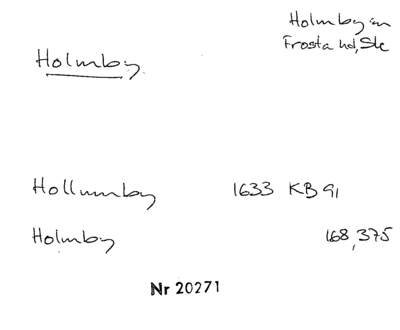 Holmby sn
Frosta hd, Sk
Holmby
Hollumby 1633 KB 91
Holmby 168, 375
Nr 20271